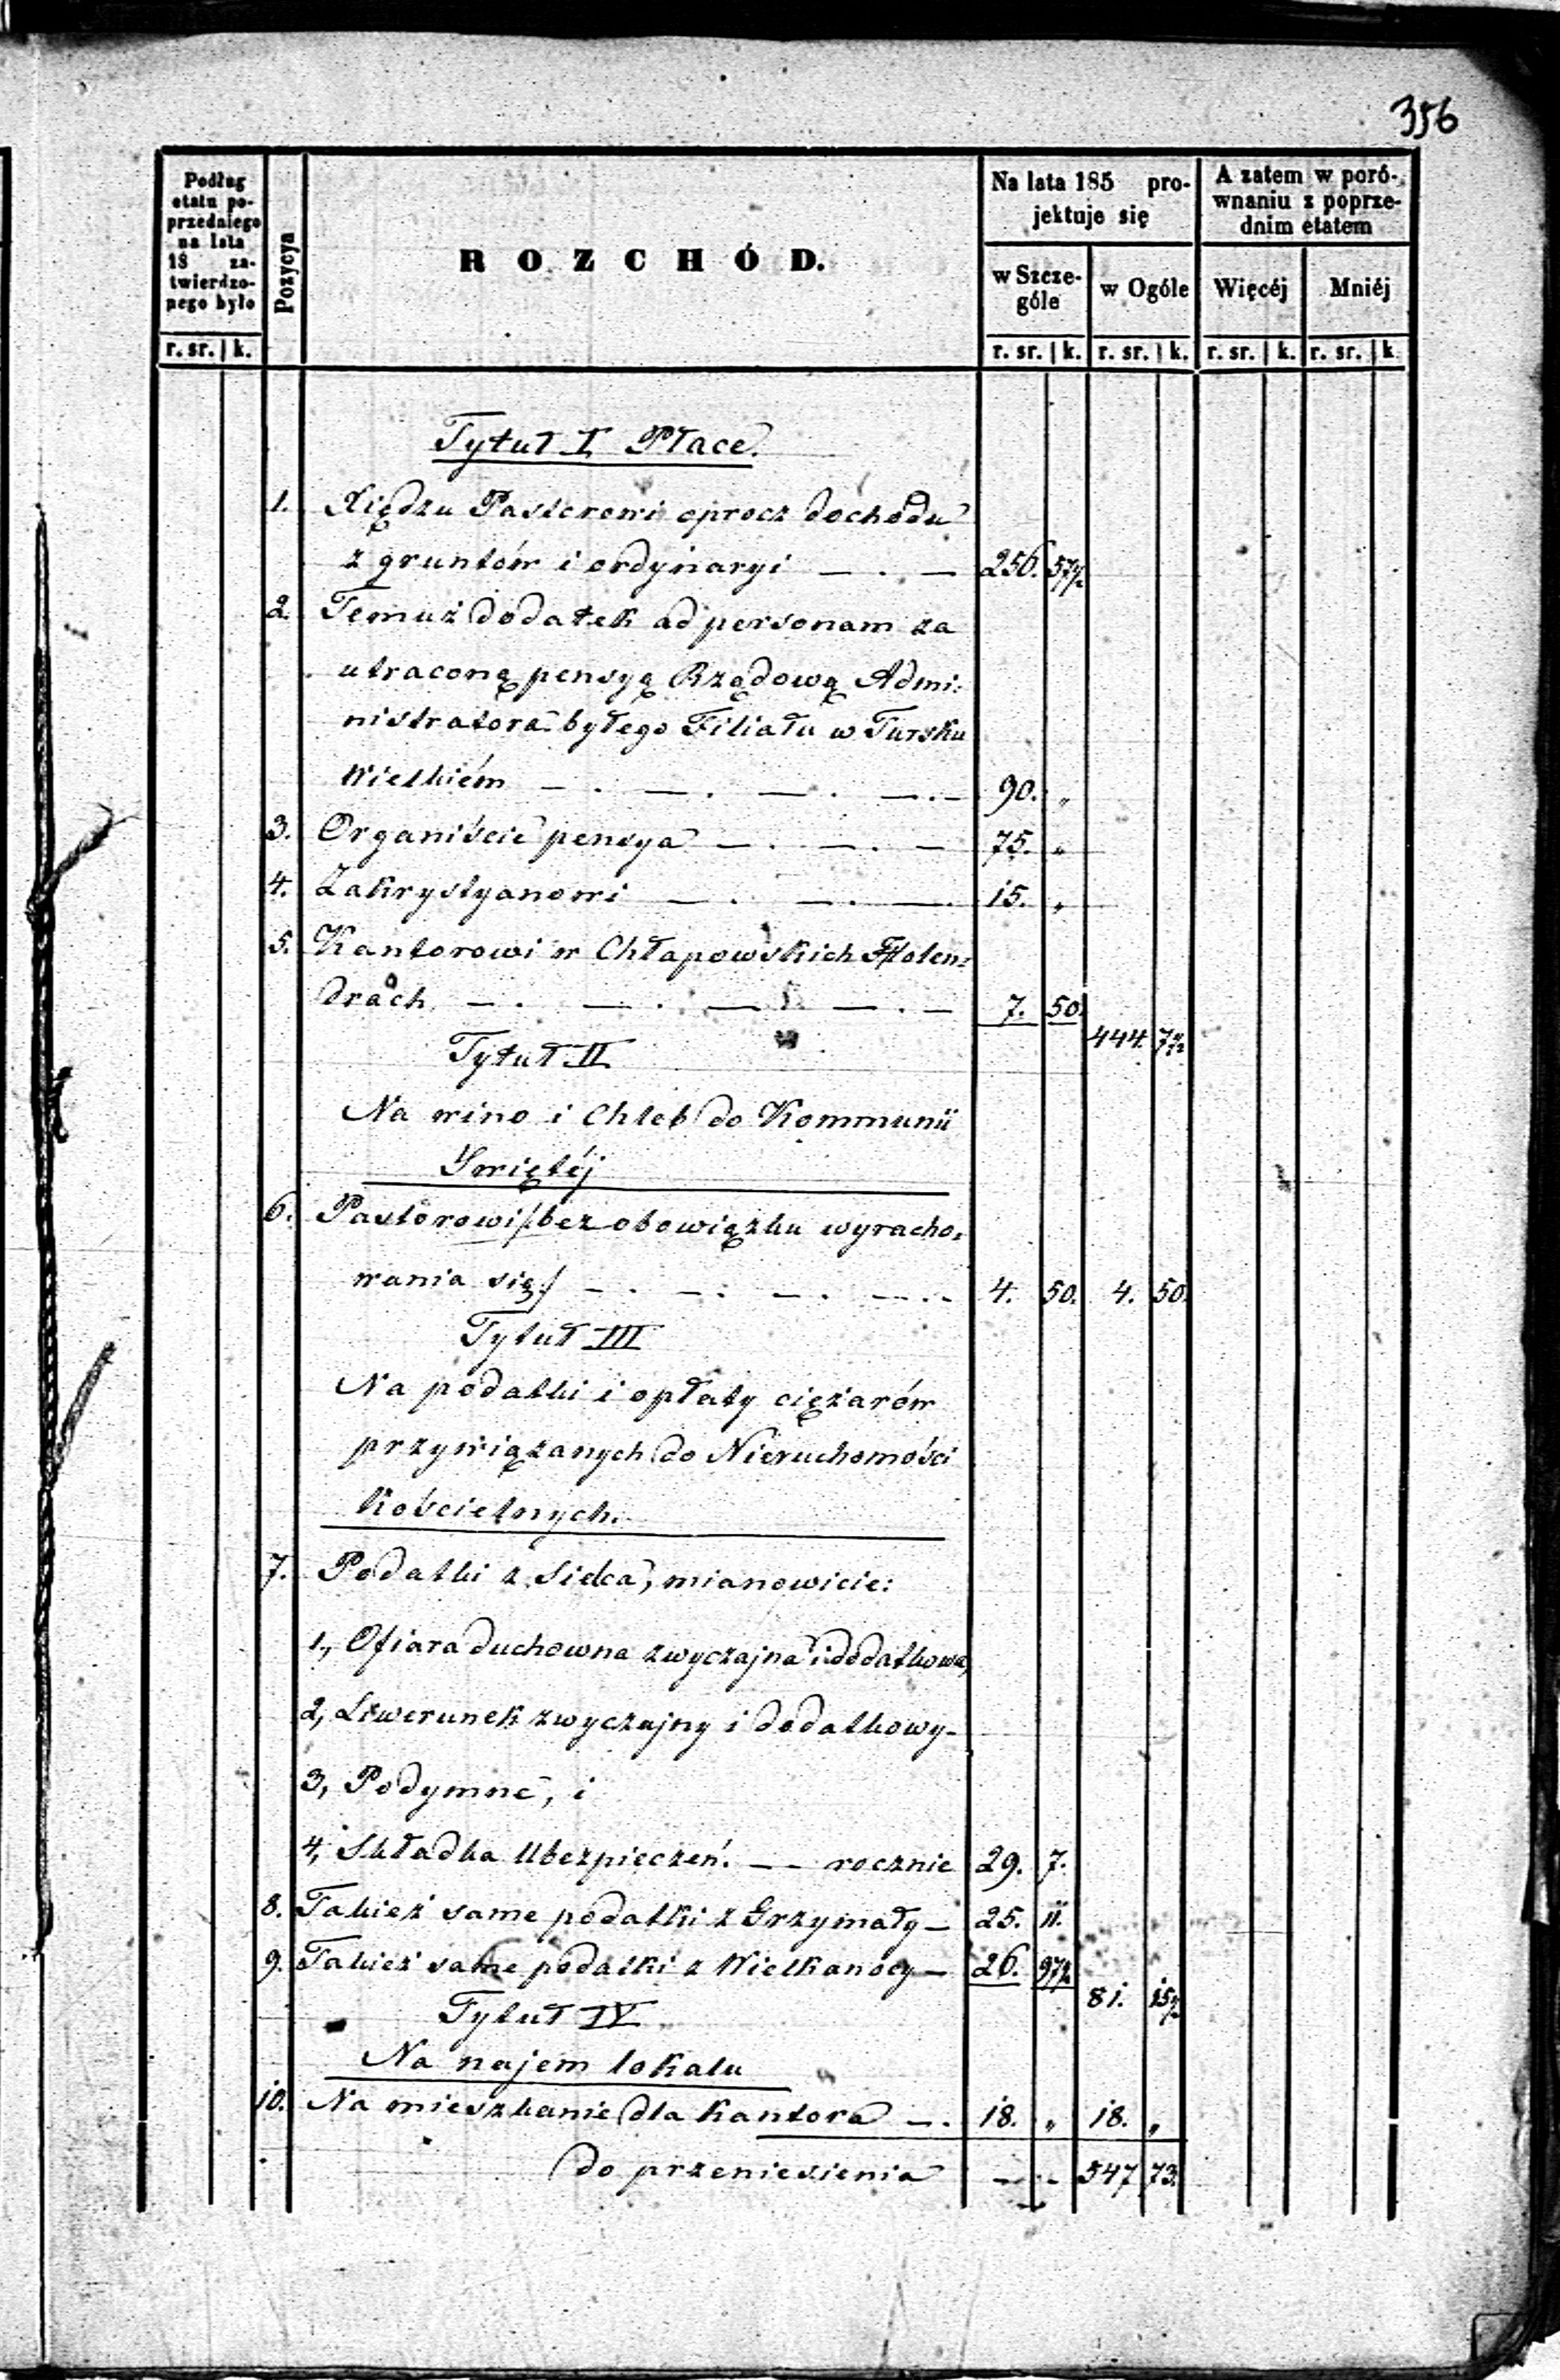 356
Podług
etatu po-
przedniego
na lata
18 za-
twierdzo-
nego było
r. sr. | k.
Pozycya
ROZCHÓD.
Na lata 185 pro-
jektuje się
w Szcze-
góle
r. sr. | k.
w Ogóle
r. sr. | k.
A zatem w poró-
wnaniu z poprze-
dnim etatem
Więcéj
r. sr. | k.
Mniéj
r. sr. | k.
Tytuł I Płace.
1. Xiędzu Pastorowi oprocz dochodu
z gruntów i ordynaryi — . — 256. 57½
2. Temuż dodatek ad personam za
utraconą pensyą Rządową Admi:
nistratora byłego Filiału w Tursku
Wielkiém — . — . — . — . — 90. "
3. Organiście pensya — . — . — 75. "
4. Zakrystyanowi — . — . — . 15. "
5. Kantorowi w Chłapowskich Holen:
drach — . — . — . — . — 7. 50.
444. 7½
Tytuł II
Na wino i Chleb do Kommunii
Swiętéj
6. Pastorowi /:bez obowiązku wyracho:
wania się:/ — . — . — . — . . 4. 50. 4. 50.
Tytuł III
Na podatki i opłaty ciężarów
przywiązanych do Nieruchomości
Kościelnych.
7. Podatki z Sielca, mianowicie:
1, Ofiara duchowna zwyczajna i dodatkowa,
2, Liwerunek zwyczajny i dodatkowy -
3, Podymne, i
4, Składka Ubezpieczeń. — — rocznie 29. 7.
8. Takież same podatki z Grzymały — 25. 11.
9. Takież same podatki z Wielkanocy — 26. 97½
81. 15½
Tytuł IV
Na najem lokalu
10. Na mieszkanie dla Kantora — . 18. " 18. "
do przeniesienia — . — 547 73.